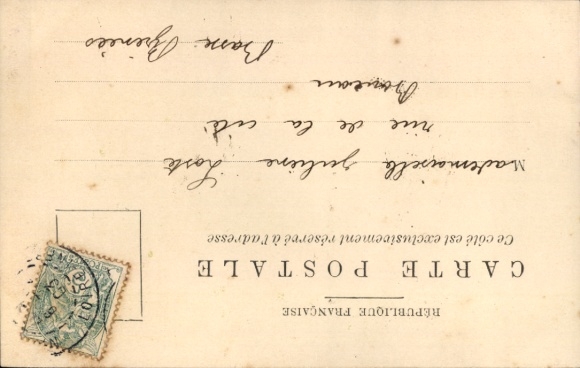 RÉPUBLIQUE FRANÇAISE
CARTE POSTALE
Ce côté est exclusivement réservé à l'adresse
Mademoiselle Juliene
rue de la cité
Basse Pyrénées